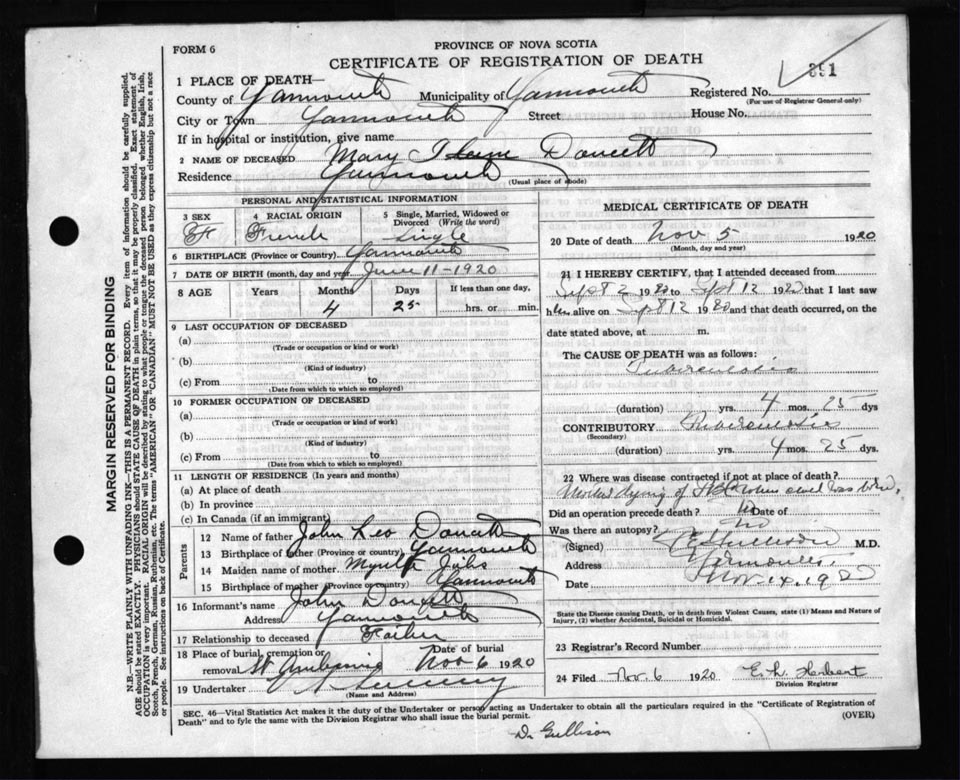 PROVINCE OF NOVA SCOTIA
FORM 6
CERTIFICATE OF REGISTRATION OF DEATH
891
1 PLACE OF DEATH—
County of Yarmouth Municipality of Yarmouth Registered No.
(For use of Registrar General only)
City or Town Yarmouth Street House No.
If in hospital or institution, give name
2 NAME OF DECEASED Mary Doucett
Residence Yarmouth
(Usual place of abode)
PERSONAL AND STATISTICAL INFORMATION
3 SEX 4 RACIAL ORIGIN 5 Single, Married, Widowed or Divorced (Write the word)
F French Single
6 BIRTHPLACE (Province or Country) Yarmouth
7 DATE OF BIRTH (month, day and year) June 11-1920
8 AGE Years Months Days If less than one day,
4 25 hrs. or min.
9 LAST OCCUPATION OF DECEASED
(a)
(Trade or occupation or kind or work)
(b)
(Kind of industry)
(c) From to
(Date from which to which so employed)
10 FORMER OCCUPATION OF DECEASED
(a)
(Trade or occupation or kind of work)
(b)
(Kind of industry)
(c) From to
(Date from which to which so employed)
11 LENGTH OF RESIDENCE (In years and months)
(a) At place of death
(b) In province
(c) In Canada (if an immigrant)
Parents
12 Name of father John Leo Doucett
13 Birthplace of father (Province or country) Yarmouth
14 Maiden name of mother Myrtle
15 Birthplace of mother (Province or country) Yarmouth
16 Informant's name John Doucett
Address Yarmouth
17 Relationship to deceased Father
18 Place of burial, cremation or Date of burial
removal St Nov 6 1920
19 Undertaker
(Name and Address)
MEDICAL CERTIFICATE OF DEATH
20 Date of death Nov 5 1920
(Month, day and year)
21 I HEREBY CERTIFY, that I attended deceased from
Sept 2 1920 to Sept 12 1920 that I last saw
her alive on Sept 12 1920 and that death occurred, on the
date stated above, at m.
The CAUSE OF DEATH was as follows:
Tuberculosis
(duration) yrs. 4 mos. 25 dys
CONTRIBUTORY Tuberculosis
(Secondary)
(duration) yrs. 4 mos. 25 dys.
22 Where was disease contracted if not at place of death?
Mother dying of when child was born.
Did an operation precede death? No Date of
Was there an autopsy? No
(Signed) M.D.
Address Yarmouth
Date Nov. 1920
State the Disease causing Death, or in death from Violent Causes, state (1) Means and Nature of Injury, (2) whether Accidental, Suicidal or Homicidal.
23 Registrar's Record Number
24 Filed Nov. 6 1920 Herbert
Division Registrar
SEC. 46—Vital Statistics Act makes it the duty of the Undertaker or person acting as Undertaker to obtain all the particulars required in the "Certificate of Registration of
Death" and to fyle the same with the Division Registrar who shall issue the burial permit. (OVER)
Dr Gullison
MARGIN RESERVED FOR BINDING
N.B.—WRITE PLAINLY WITH UNFADING INK—THIS IS A PERMANENT RECORD. Every item of information should be carefully supplied.
AGE should be stated EXACTLY. PHYSICIANS should STATE CAUSE OF DEATH in plain terms, so that it may be properly classified. Exact statement of
OCCUPATION is very important. RACIAL ORIGIN will be described by stating to what people or tongue the deceased person belonged whether English, Irish,
Scotch, French, German, Russian, Ruthenian, etc. The terms "AMERICAN" or "CANADIAN" MUST NOT BE USED as they express citizenship but not a race
or people. See instructions on back of Certificate.